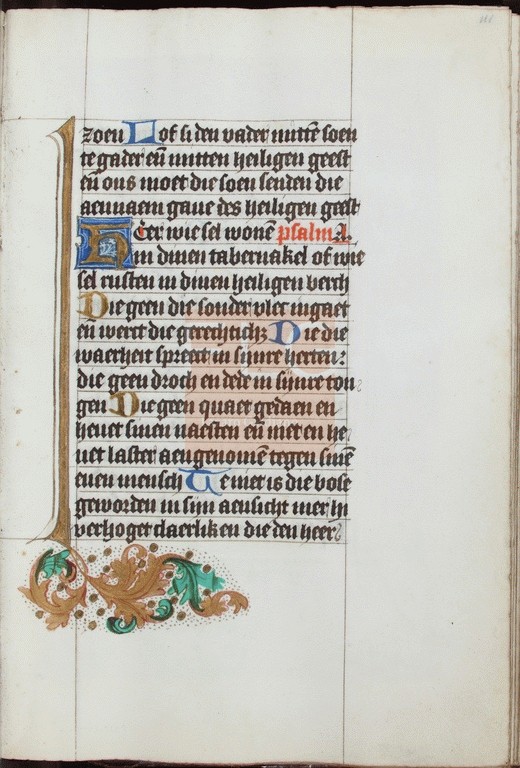 zoen Lof si den vader mittē soen
te gader eñ mitten heiligen geest
eñ ons moet die soen senden die
aennaem gaue des heiligen geest
Heer wie sel wonē psalm.
in dinen tabernakel of wie
sel rusten in dinen heiligen berch
Die geen die sonder vlec ingaet
eñ werct die gerechtich; Die die
waerheit spreect in sijnre herten:
die geen droch en dede in sijnre ton
gen Die geen quaet gedaen en
heuet sinen naesten eñ niet en he
uet laster aengenomē tegen sinē
euen mensch Te niet is die bose
geworden in sijn aensicht mer hi
verhoget claerliken die den heer